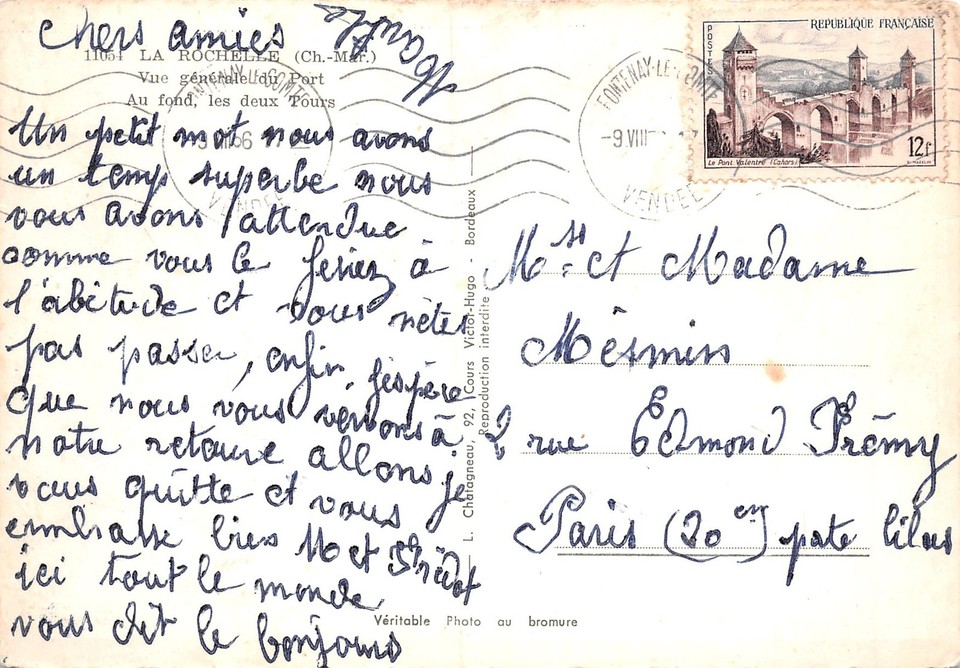 chers amies
11054 LA ROCHELLE (Ch-Mar.)
Vue générale du Port
Au fond, les deux Tours
Un petit mot nous avons
un temp superbe nous
vous avons attendue
comme vous le feriez à
l'abitude et vous nètes
pas passer, enfin j'espère
que nous vous verrons à
notre retoure allons je
vous quitte et vous
embrasse bien M et
ici tout le monde
vous dit le bonjours
L. Chatagneau, 92, Cours Victor-Hugo - Bordeaux
Reproduction interdite
Véritable Photo au bromure
FONTENAY-LE-COMTE
VENDÉE
FONTENAY-LE-COMTE
-9 VIII
VENDÉE
REPUBLIQUE FRANÇAISE
POSTES
Le Pont Valentré (Cahors)
12f
Mr et Madame
Mésmin
2 rue Edmond Frémy
Paris (20em) pote lilas